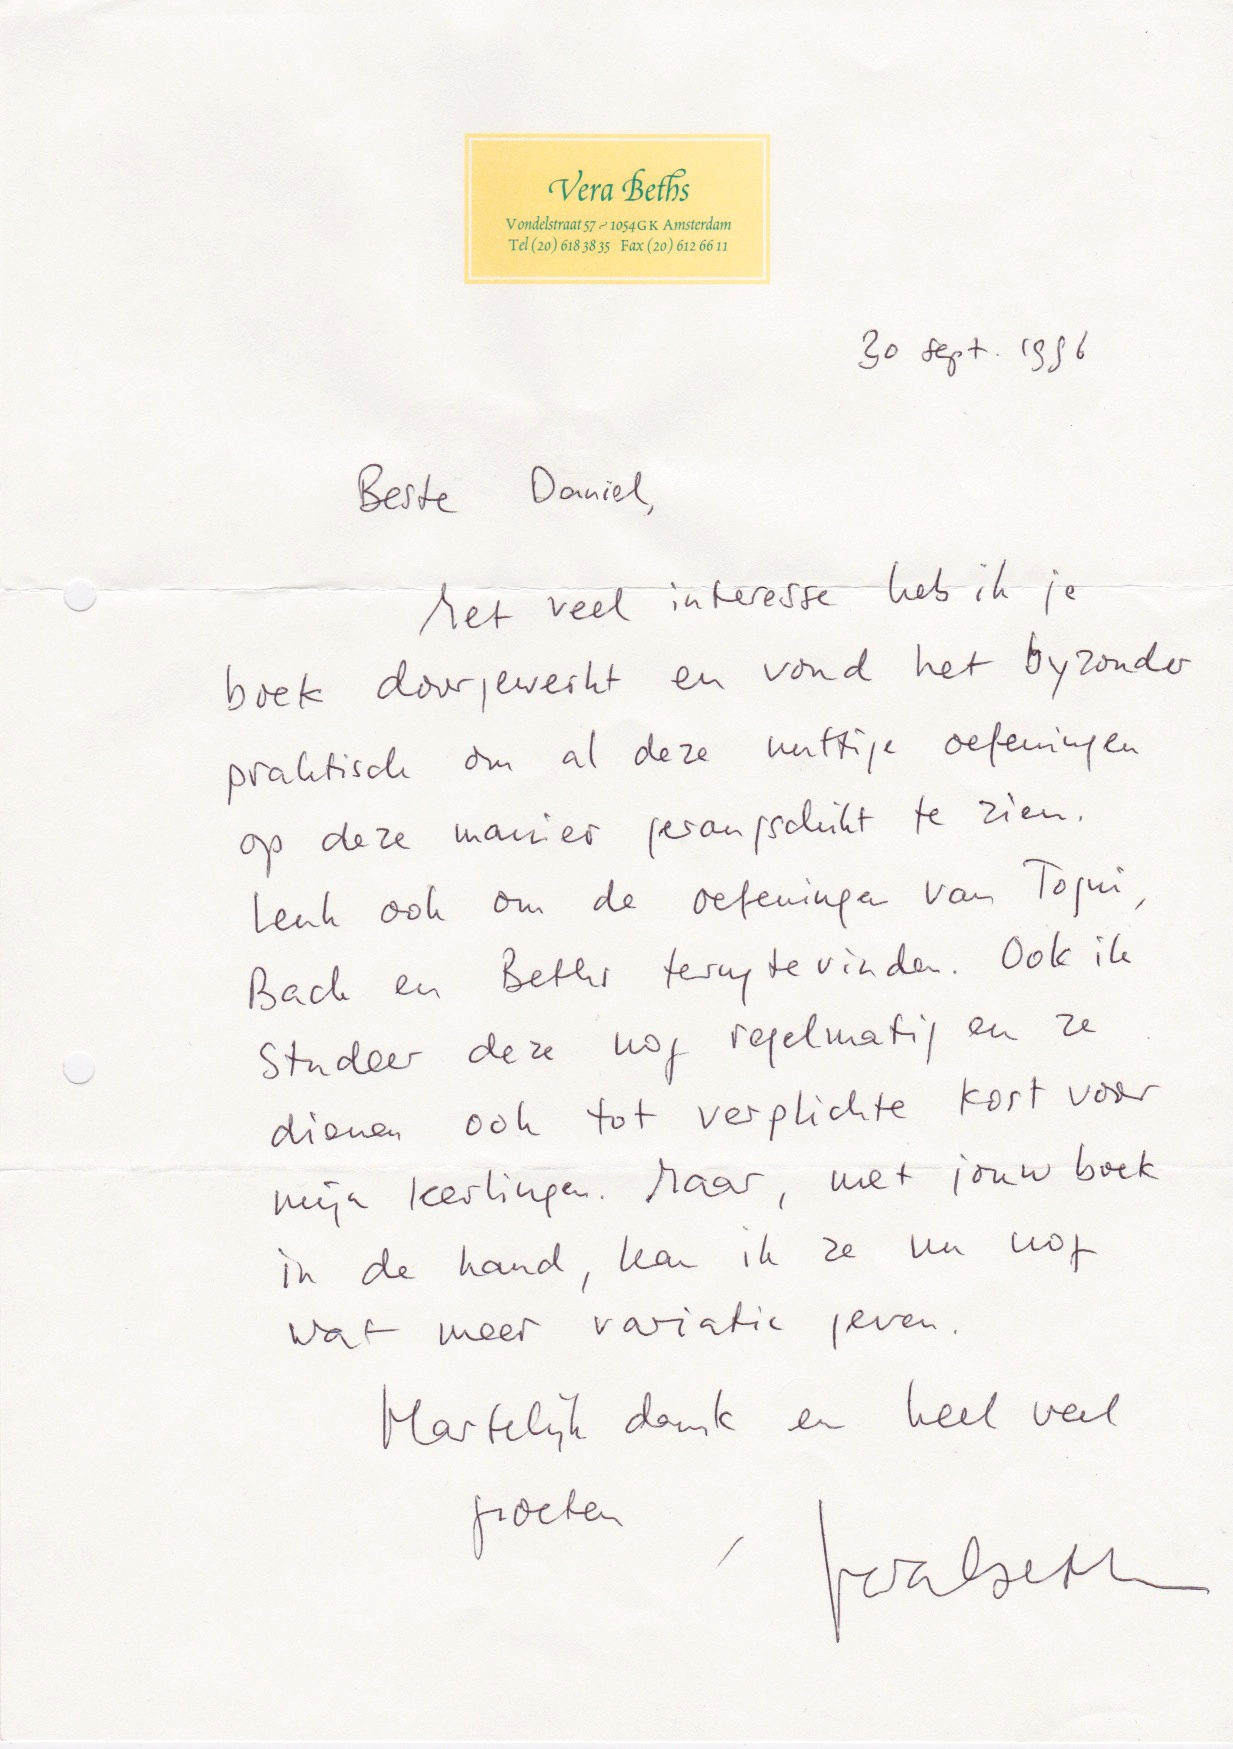 Vera Beths
Vondelstraat 57 ~ 1054 GK Amsterdam
Tel (20) 618 38 35 Fax (20) 612 66 11
30 sept. 1996
Beste Daniel,
Met veel interesse heb ik je
boek doorgewerkt en vond het byzonder
praktisch om al deze nuttige oefeningen
op deze manier gerangschikt te zien.
Leuk ook om de oefeningen van
Bach en Beths terug te vinden. Ook ik
studeer deze nog regelmatig en ze
dienen ook tot verplichte kost voor
mijn leerlingen. Maar, met jouw boek
in de hand, kan ik ze nu nog
wat meer variatie geven.
Hartelijk dank en heel veel
groeten,
Vera Beths